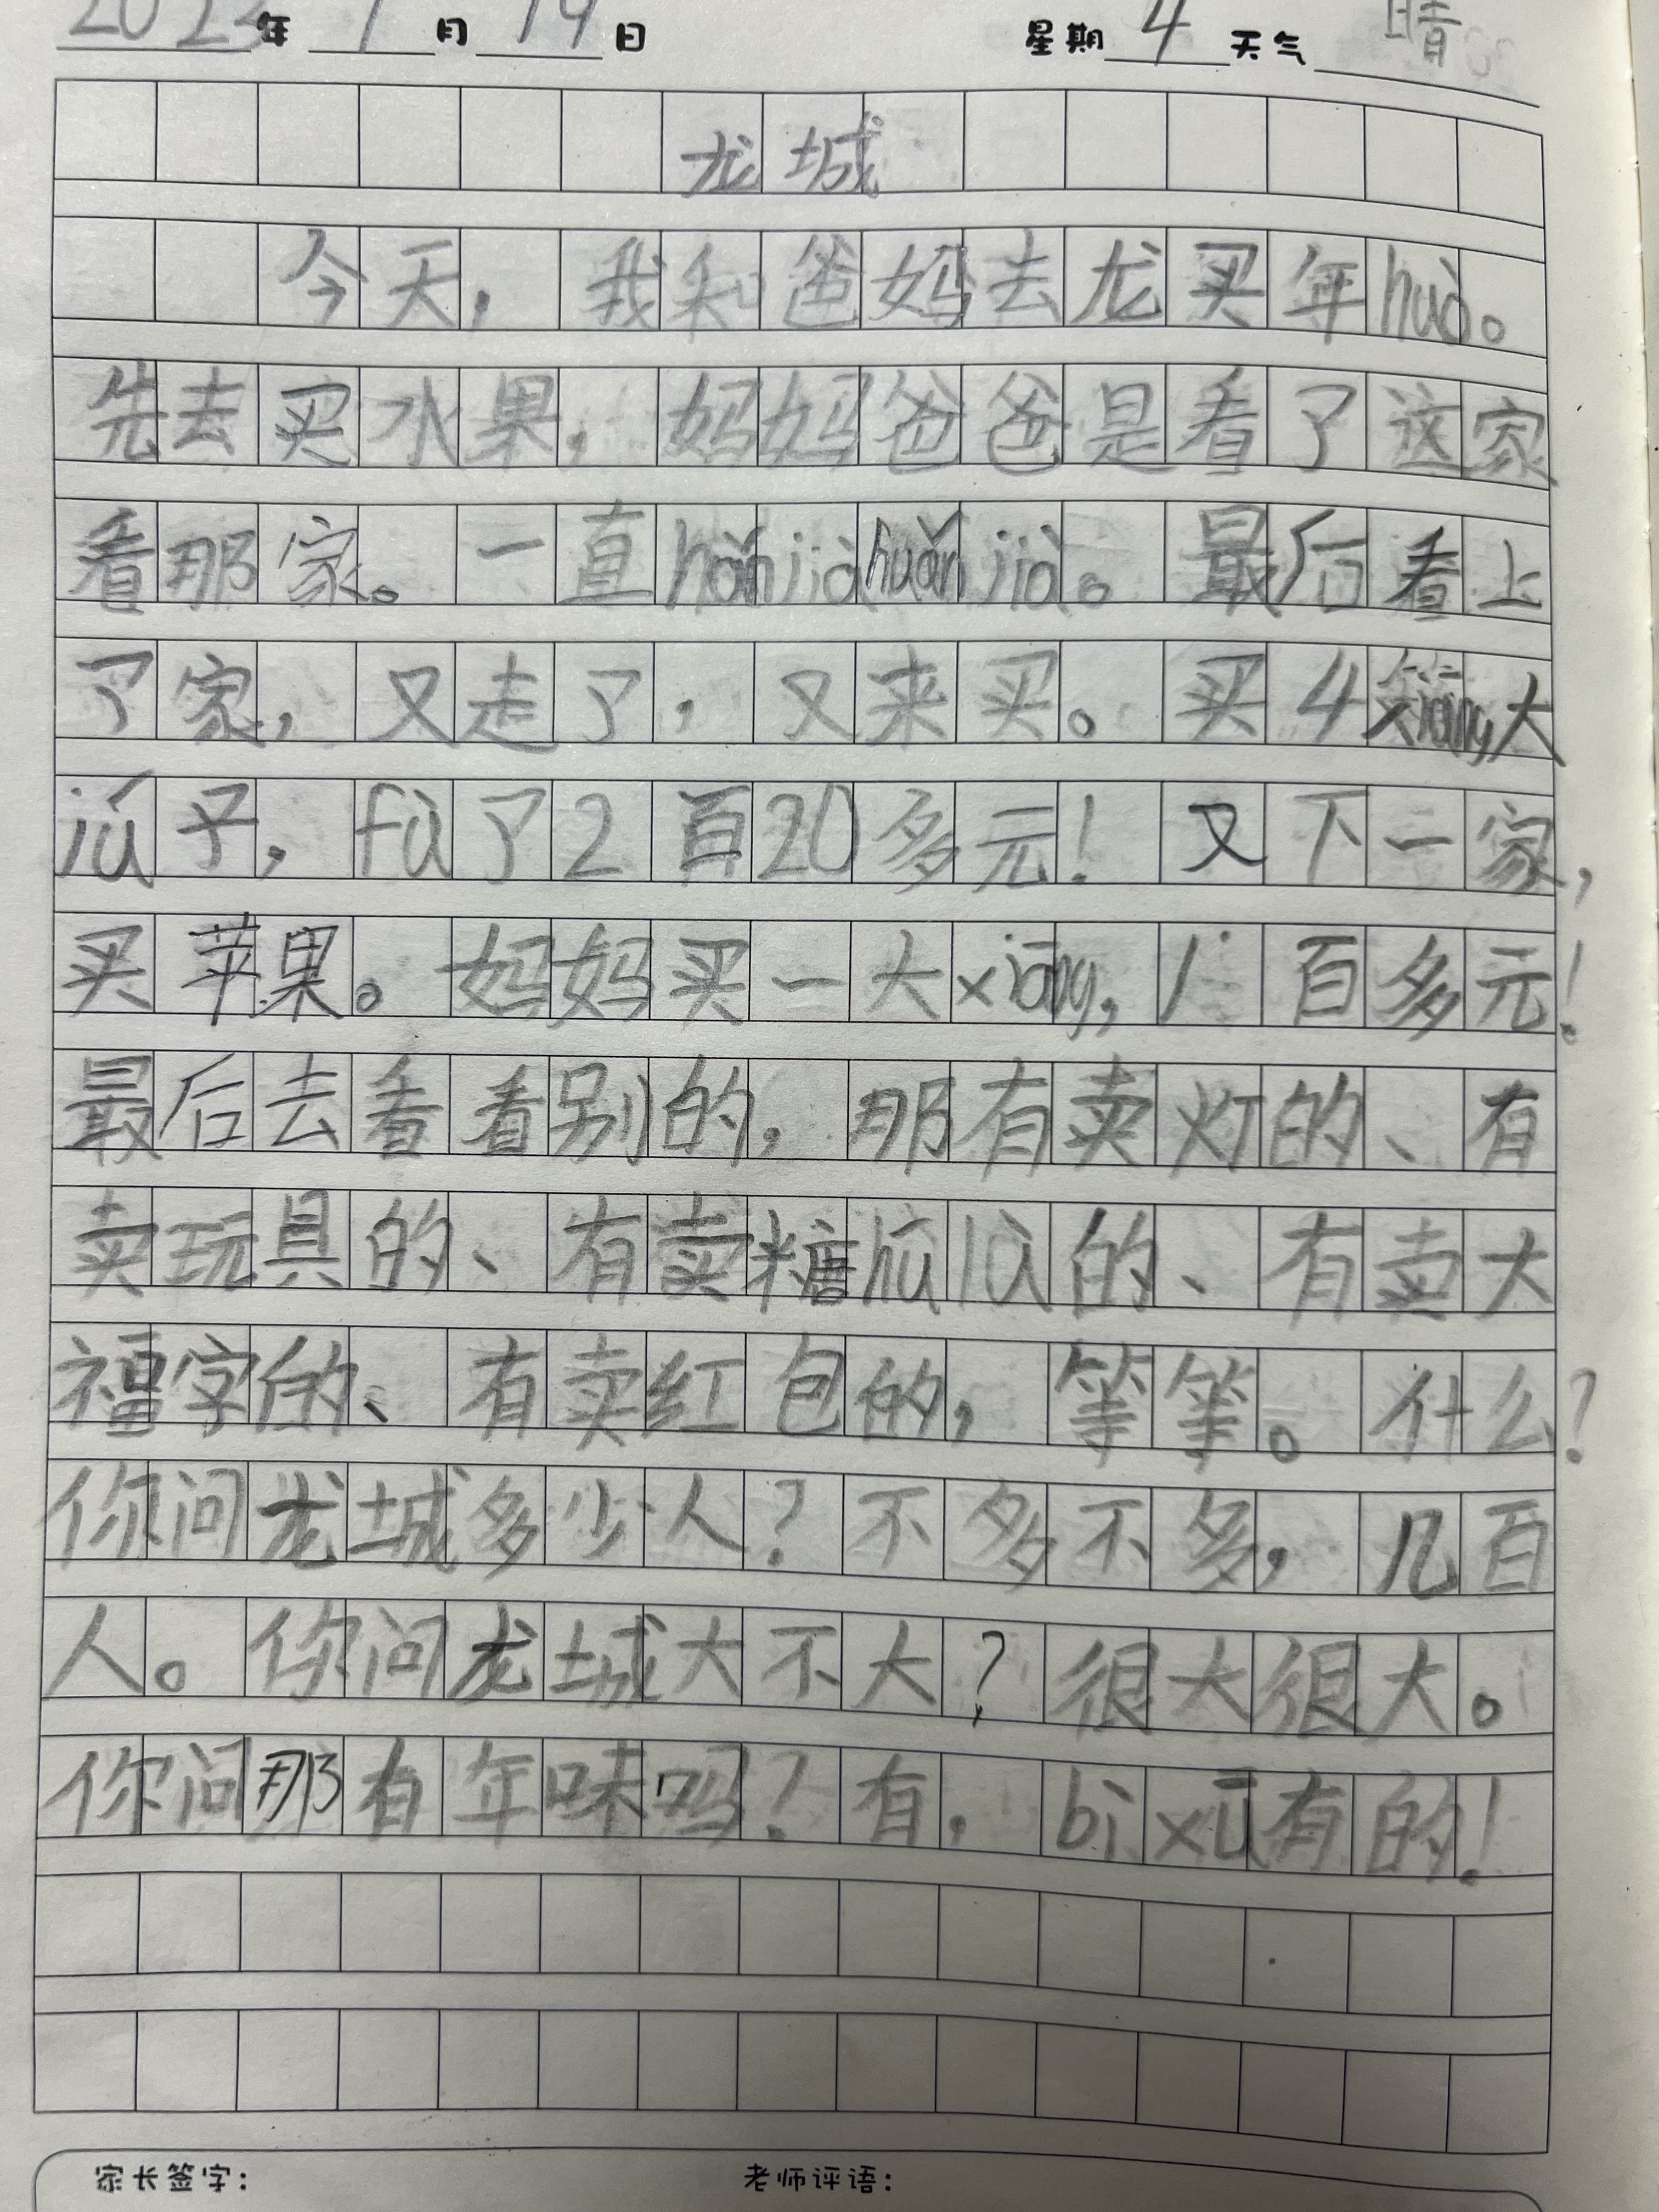 2023年1月19日 星期4天气晴
龙城
今天，我和爸妈去龙买年huò。
先去买水果，妈妈爸爸是看了这家
看那家。一直hǎnjiàhuánjià。最后看上
了家，又走了，又来买。买4xiāng大
jú子，fù了2百20多元！又下一家，
买苹果。妈妈买一大xiāng，1百多元！
最后去看看别的，那有卖灯的、有
卖玩具的、有卖糖húlù的、有卖大
福字的、有卖红包的，等等。什么？
你问龙城多少人？不多不多，几百
人。你问龙城大不大？很大很大。
你问那有年味吗？有，bìxū有的！
家长签字： 老师评语：